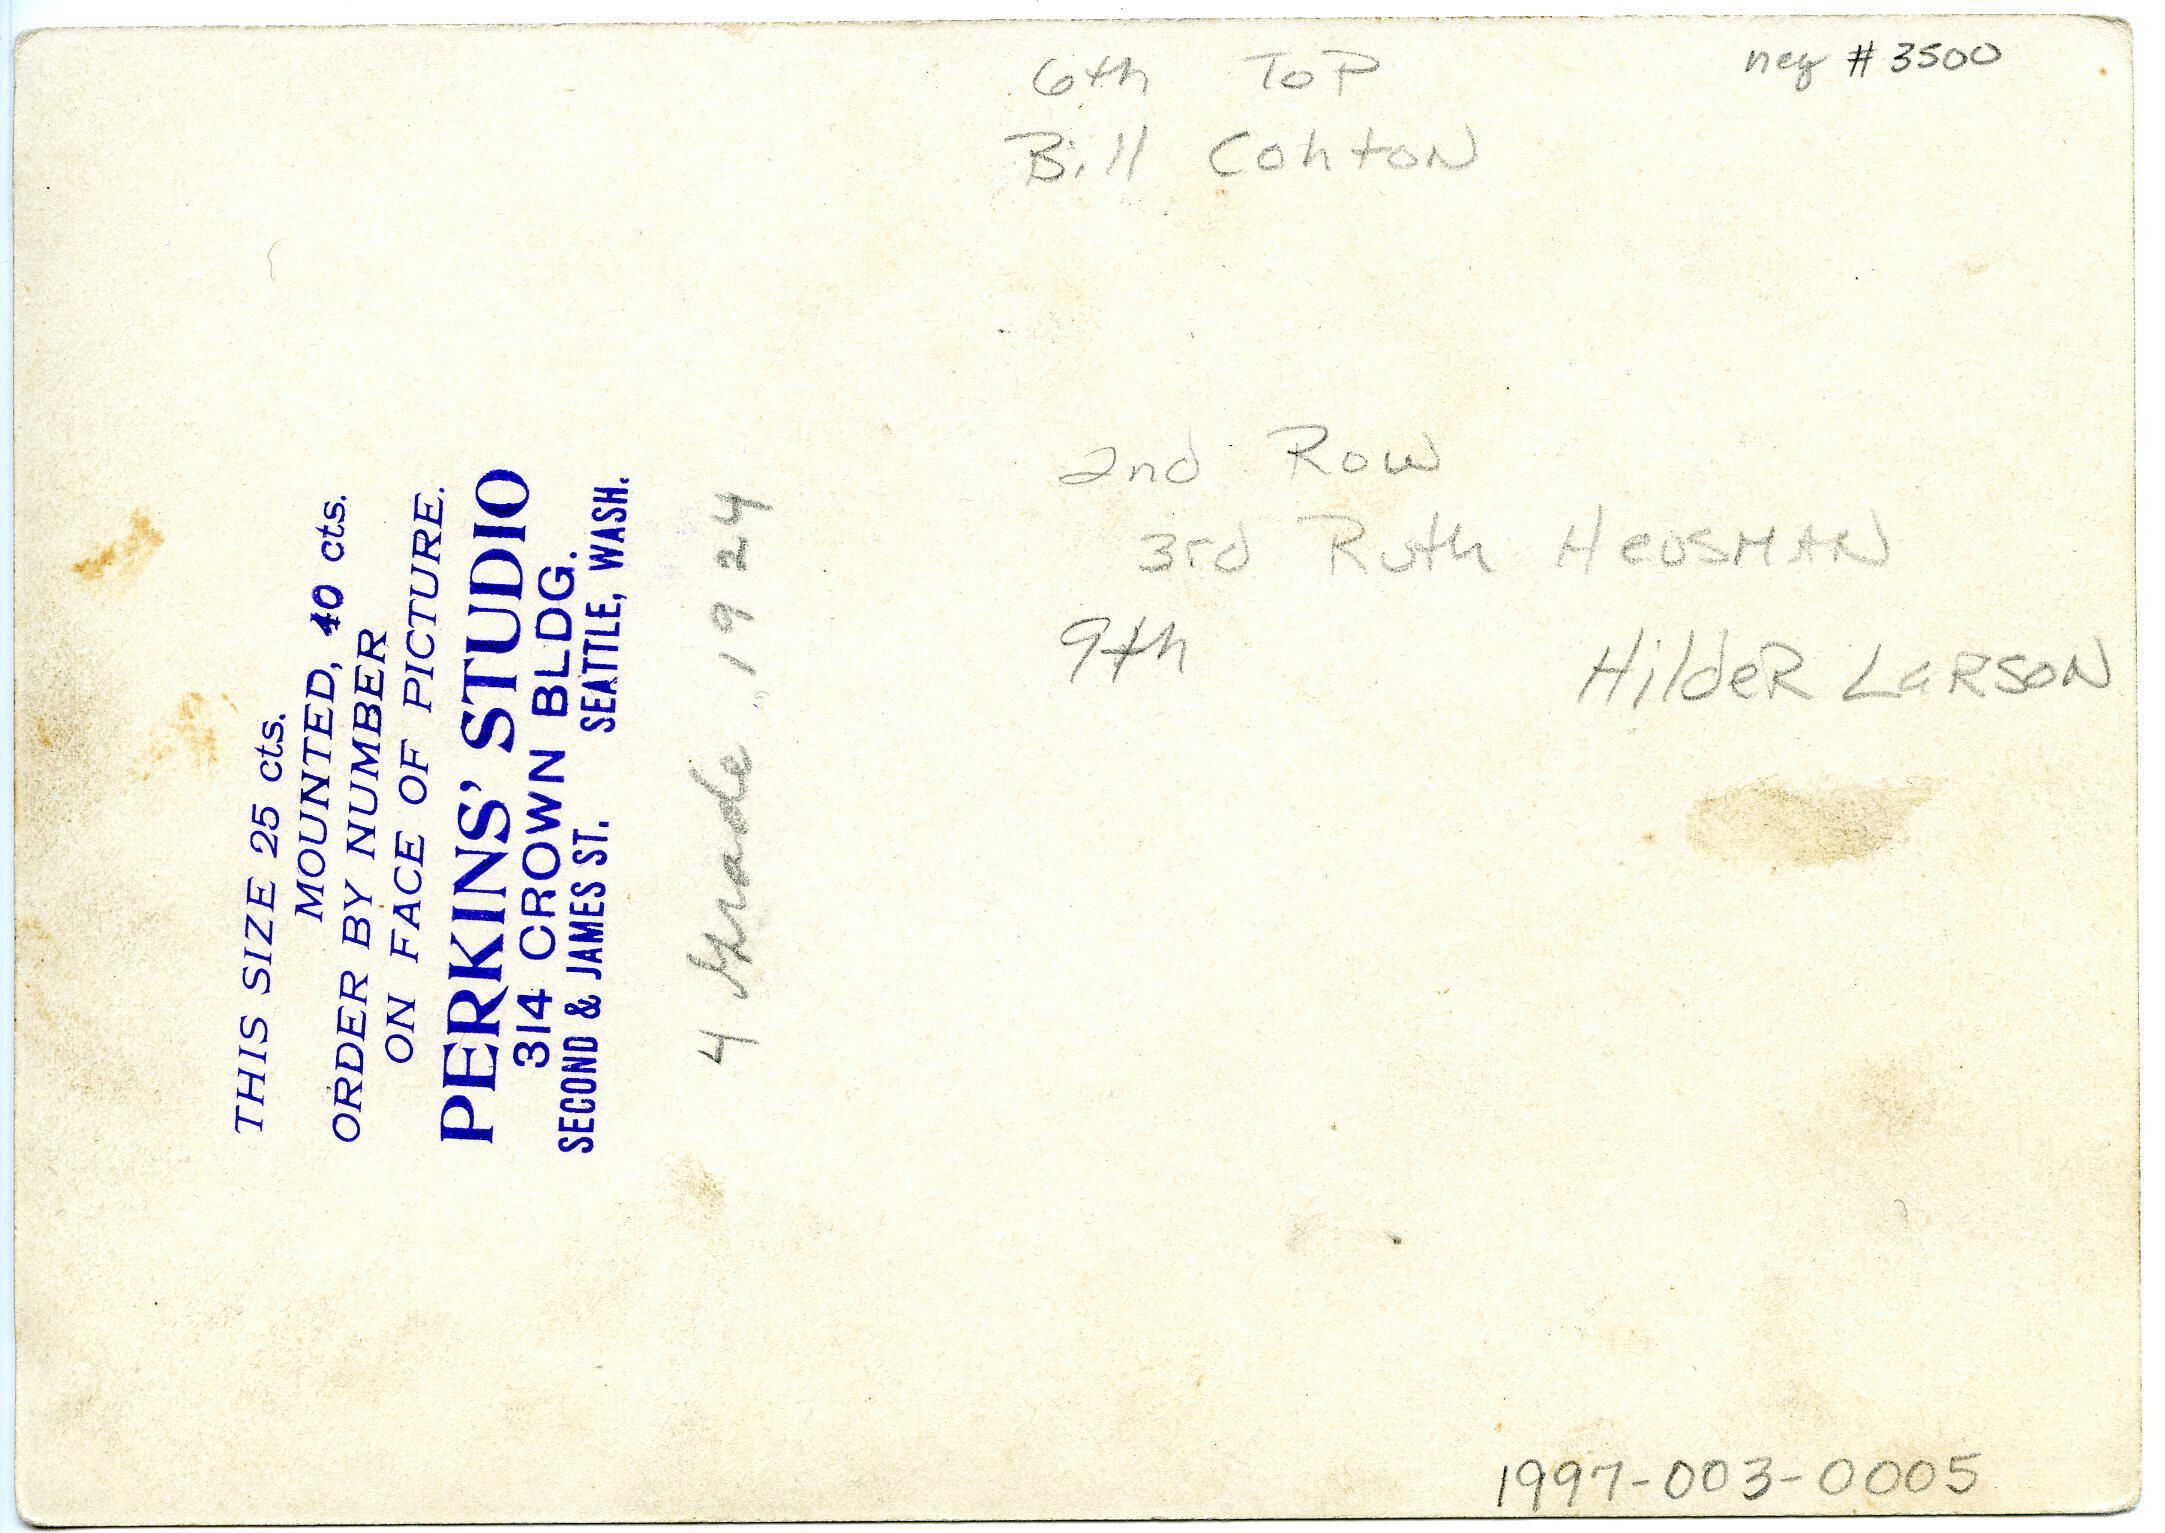 neg # 3500
6th TOP
Bill Cohton
2nd Row
3rd Ruth HeusMAN
9th HildeR LaRSON
THIS SIZE 25 cts.
MOUNTED, 40 cts.
ORDER BY NUMBER
ON FACE OF PICTURE.
PERKINS' STUDIO
314 CROWN BLDG.
SECOND & JAMES ST. SEATTLE, WASH.
4 Grade 1924
1997-003-0005